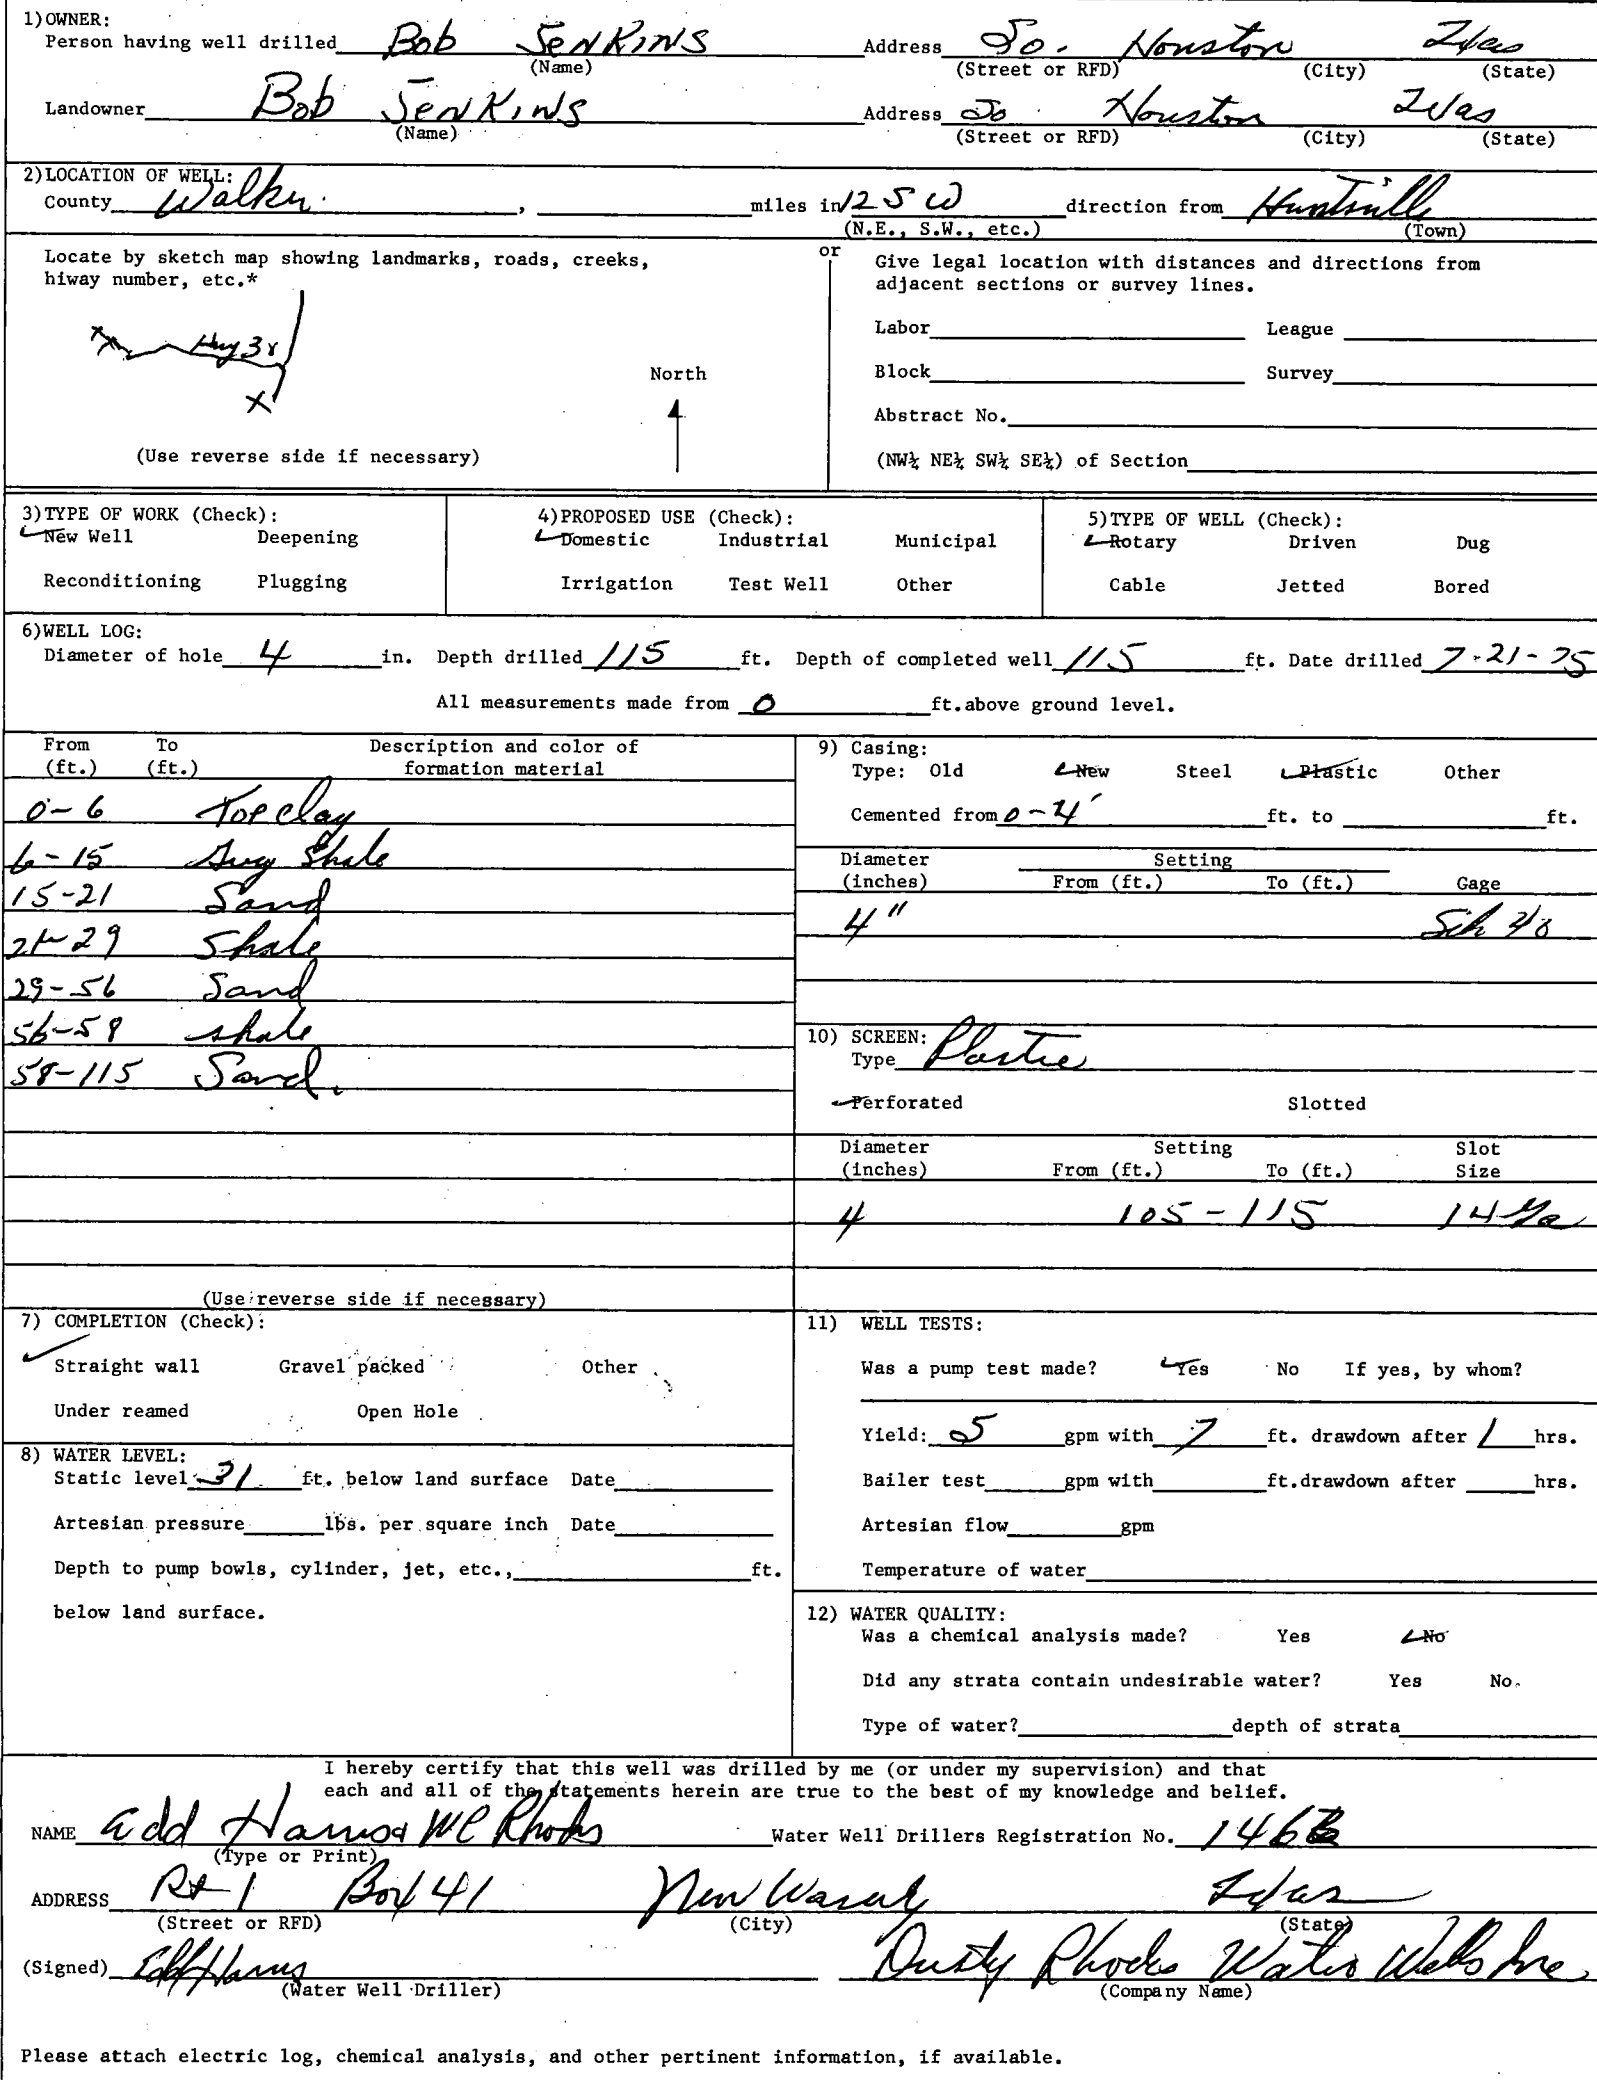 1)OWNER:
Person having well drilled Bob Jenkins Address So. Houston Texas
(Name) (Street or RFD) (City) (State)
Landowner Bob Jenkins Address So Houston Texas
(Name) (Street or RFD) (City) (State)
2)LOCATION OF WELL:
County Walker, miles in 12 S W direction from Huntsville
(N.E., S.W., etc.) (Town)
Locate by sketch map showing landmarks, roads, creeks,
hiway number, etc.*
or
Give legal location with distances and directions from
adjacent sections or survey lines.
Hwy
X
North
(Use reverse side if necessary)
Labor League
Block Survey
Abstract No.
(NW¼ NE¼ SW¼ SE¼) of Section
3)TYPE OF WORK (Check):
✓New Well Deepening
Reconditioning Plugging
4)PROPOSED USE (Check):
✓Domestic Industrial Municipal
Irrigation Test Well Other
5)TYPE OF WELL (Check):
✓Rotary Driven Dug
Cable Jetted Bored
6)WELL LOG:
Diameter of hole 4 in. Depth drilled 115 ft. Depth of completed well 115 ft. Date drilled 7-21-75
All measurements made from 0 ft.above ground level.
From To Description and color of
(ft.) (ft.) formation material
0-6 Top clay
6-15 Shale
15-21 Sand
21-29 Shale
29-56 Sand
56-58 shale
58-115 Sand.
(Use reverse side if necessary)
9) Casing:
Type: Old ✓New Steel ✓Plastic Other
Cemented from 0-4' ft. to ft.
Diameter Setting
(inches) From (ft.) To (ft.) Gage
4" Sch 40
10) SCREEN:
Type Plastic
✓Perforated Slotted
Diameter Setting Slot
(inches) From (ft.) To (ft.) Size
4 105-115 14 Ga
7) COMPLETION (Check):
✓Straight wall Gravel packed Other
Under reamed Open Hole
8) WATER LEVEL:
Static level 31 ft. below land surface Date
Artesian pressure lbs. per square inch Date
Depth to pump bowls, cylinder, jet, etc., ft.
below land surface.
11) WELL TESTS:
Was a pump test made? ✓Yes No If yes, by whom?
Yield: 5 gpm with 7 ft. drawdown after 1 hrs.
Bailer test gpm with ft.drawdown after hrs.
Artesian flow gpm
Temperature of water
12) WATER QUALITY:
Was a chemical analysis made? Yes ✓No
Did any strata contain undesirable water? Yes No
Type of water? depth of strata
I hereby certify that this well was drilled by me (or under my supervision) and that
each and all of the statements herein are true to the best of my knowledge and belief.
NAME Edd Harris & WC Rhodes Water Well Drillers Registration No.
(Type or Print)
ADDRESS Rt 1 Box 41 New Waverly Texas
(Street or RFD) (City) (State)
(Signed) Edd Harris Dusty Rhodes Water Wells Inc
(Water Well Driller) (Company Name)
Please attach electric log, chemical analysis, and other pertinent information, if available.